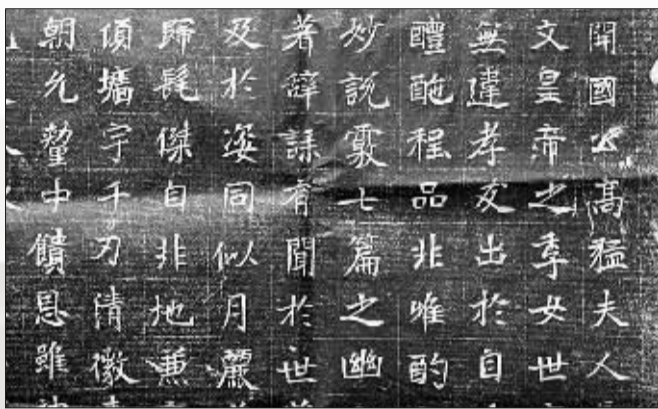 開國公高猛夫人
文皇帝之季女世
無違孝友出於自
醴酏程品非唯酌
妙說覈七篇之幽
著辝誄有聞於世
及於姿同似月麗
歸髦傑自非地兼
墉宇千刃清徽
朝允釐中饋恩雖